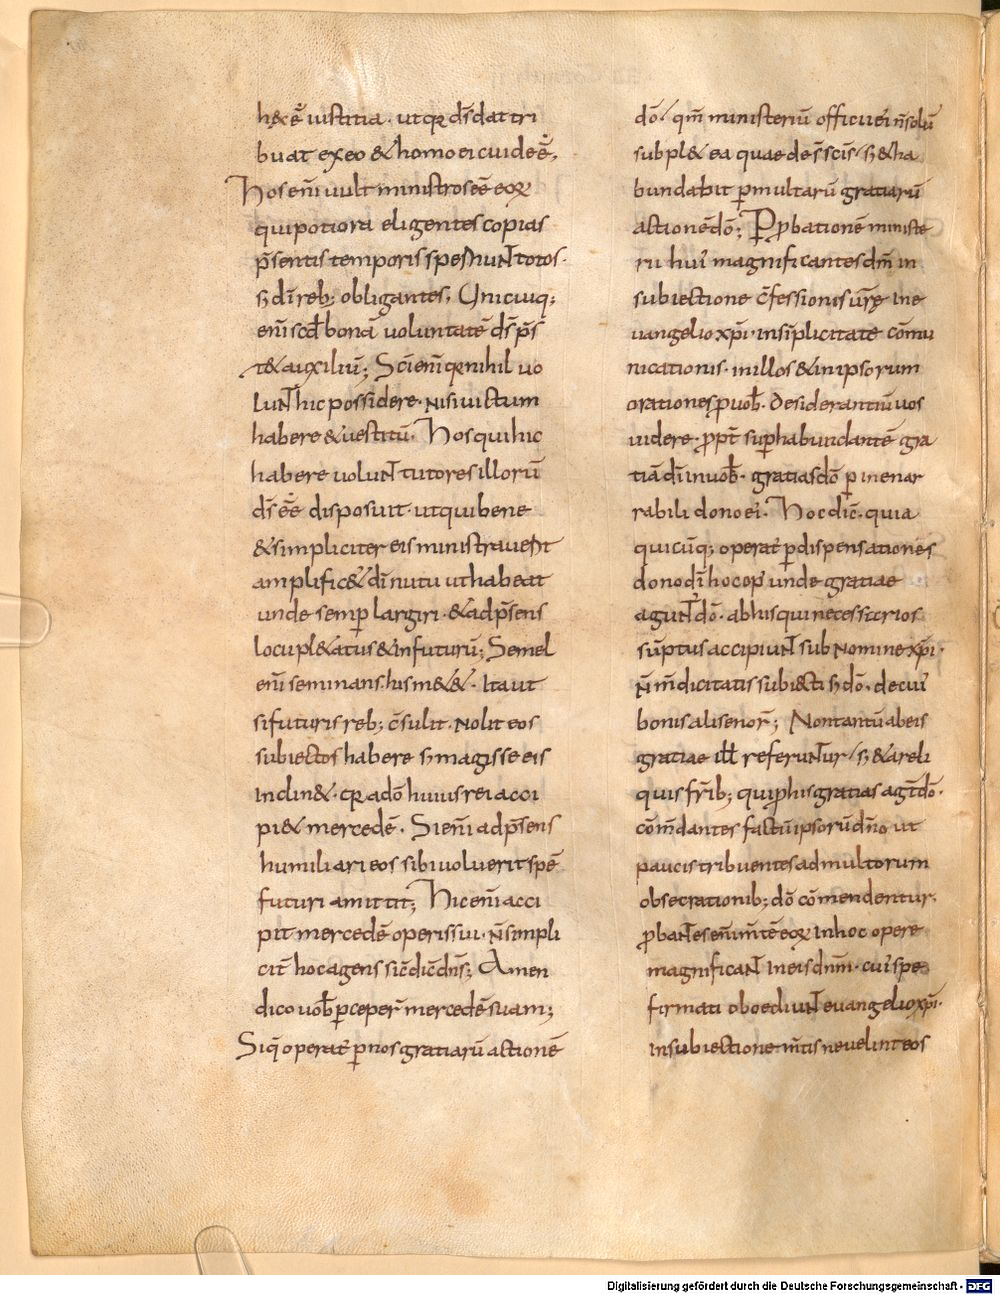 h&c ē iustitia · utqr ds̄ dat tri
buat ex eo & homo ei cui deē,
Hos enī uult ministros eē eoꝝ
qui potiora eligentes copias
p̄sentis temporis spernuNT totos·
s; dī reb; obligantes; Unicuiq;
enī scd̄ bonā uoluntatē ds̄ p̄s
t& auxiliū; Scīenī qr nihil uo
luNT hic possidere · Nisi uictum
habere & uestitū · Hos qui hic
habere uoluNT tutores illorū
ds̄ eē disposuit · ut qui bene
& simpliciter eis ministrauerit
amplific& dī nutu ut habeat
unde semp largiri · & ad p̄sens
locupl&atus & in futurū; Semel
enī seminans · his m&& · Ita ut
si futuris reb; c̄sulit · Nolit eos
subiectos habere s; magis se eis
inclin& · qr a dō huius rei acci
pi& mercedē · Si enī ad p̄sens
humiliari eos sibi uoluerit spē
futuri amittit; Hic enī acci
pit mercedē operis sui · n̄ simpli
cit̄ hoc agens sic̄ dic̄ dn̄s; Amen
dico uob̄ p̄ceper̄ mercedē suam;
Siq̄ operat̄ p nos gratiarū actionē
dō / qm̄ ministeriū officii ei n̄ solū
subpl& ea quae des̄ sc̄is / s; & ha
bundabit p multarū gratiarū
actionē dō; P p̄bationē ministe
rii hui' magnificantes dm̄ in
subiectione c̄fessionis ur̄ę in e
uangelio xp̄i · in sīplicitate cōmu
nicationis · in illos & in ipsorum
orationes p uob̄ · Desiderantiū uos
uidere · ppt̄ suphabundantē gra
tiā dī in uob̄ · gratias dō p inenar
rabili dono ei' · Hoc dic̄ · quia
quicūq; operat̄ p dispensationes
dono dī hoc op' unde gratiae
aguNT dō · ab his qui necessarios
sūptus accipiuNT sub Nomine xp̄i ·
n̄ m̄dicitatis subiecti s; dō · de cui'
bonis alisenor̄; Non tantū ab eis
gratiae ill̄ referuNTur / s; & a reli
quis fr̄ib; qui p his gratias agt̄ dō ·
cōm̄dantes factū ipsorū dn̄o ut
paucis tribuentes ad multorum
obsecrationib; dō cōmendentur ·
p̄baNTes enī m̄tē eoꝝ In hoc opere
magnificaNT In eis dn̄m · cui' spe
firmati oboediuNT euangelio xp̄i ·
In subiectione m̄tis ne uelint eos